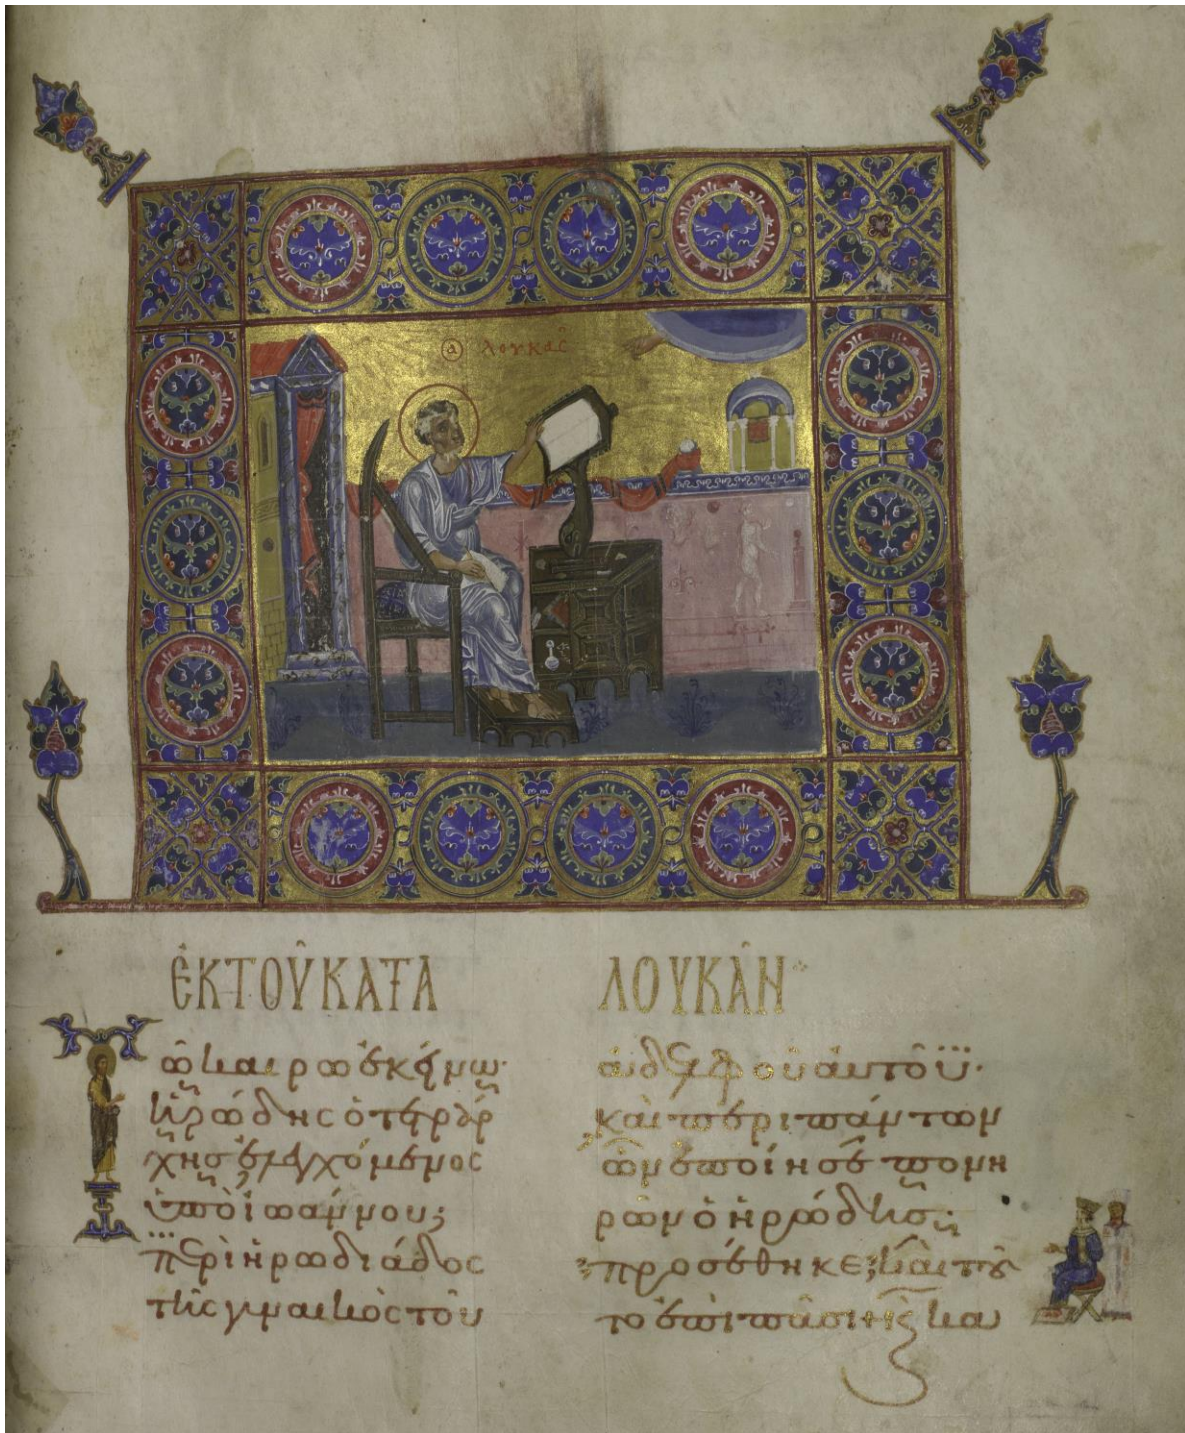 ⓐ λουκᾶς
ἐκ τοῦ κατὰ λουκᾶν
ῶ καιρῶ ἐκείνω·
ἡρώδης ὁ τετράρ
χης ἐλεγχόμενος
ὑπὸ ἰωάννου;
περὶ ἡρωδιάδος
τῆς γυναικὸς τοῦ
ἀδελφοῦ αὐτοῦ·
καὶ περὶ πάντων
ὧν ἐποίησε πονη
ρῶν ὁ ἡρώδης;
προσέθηκε; καὶ τοῦ
το ἐπὶ πᾶσι· κα